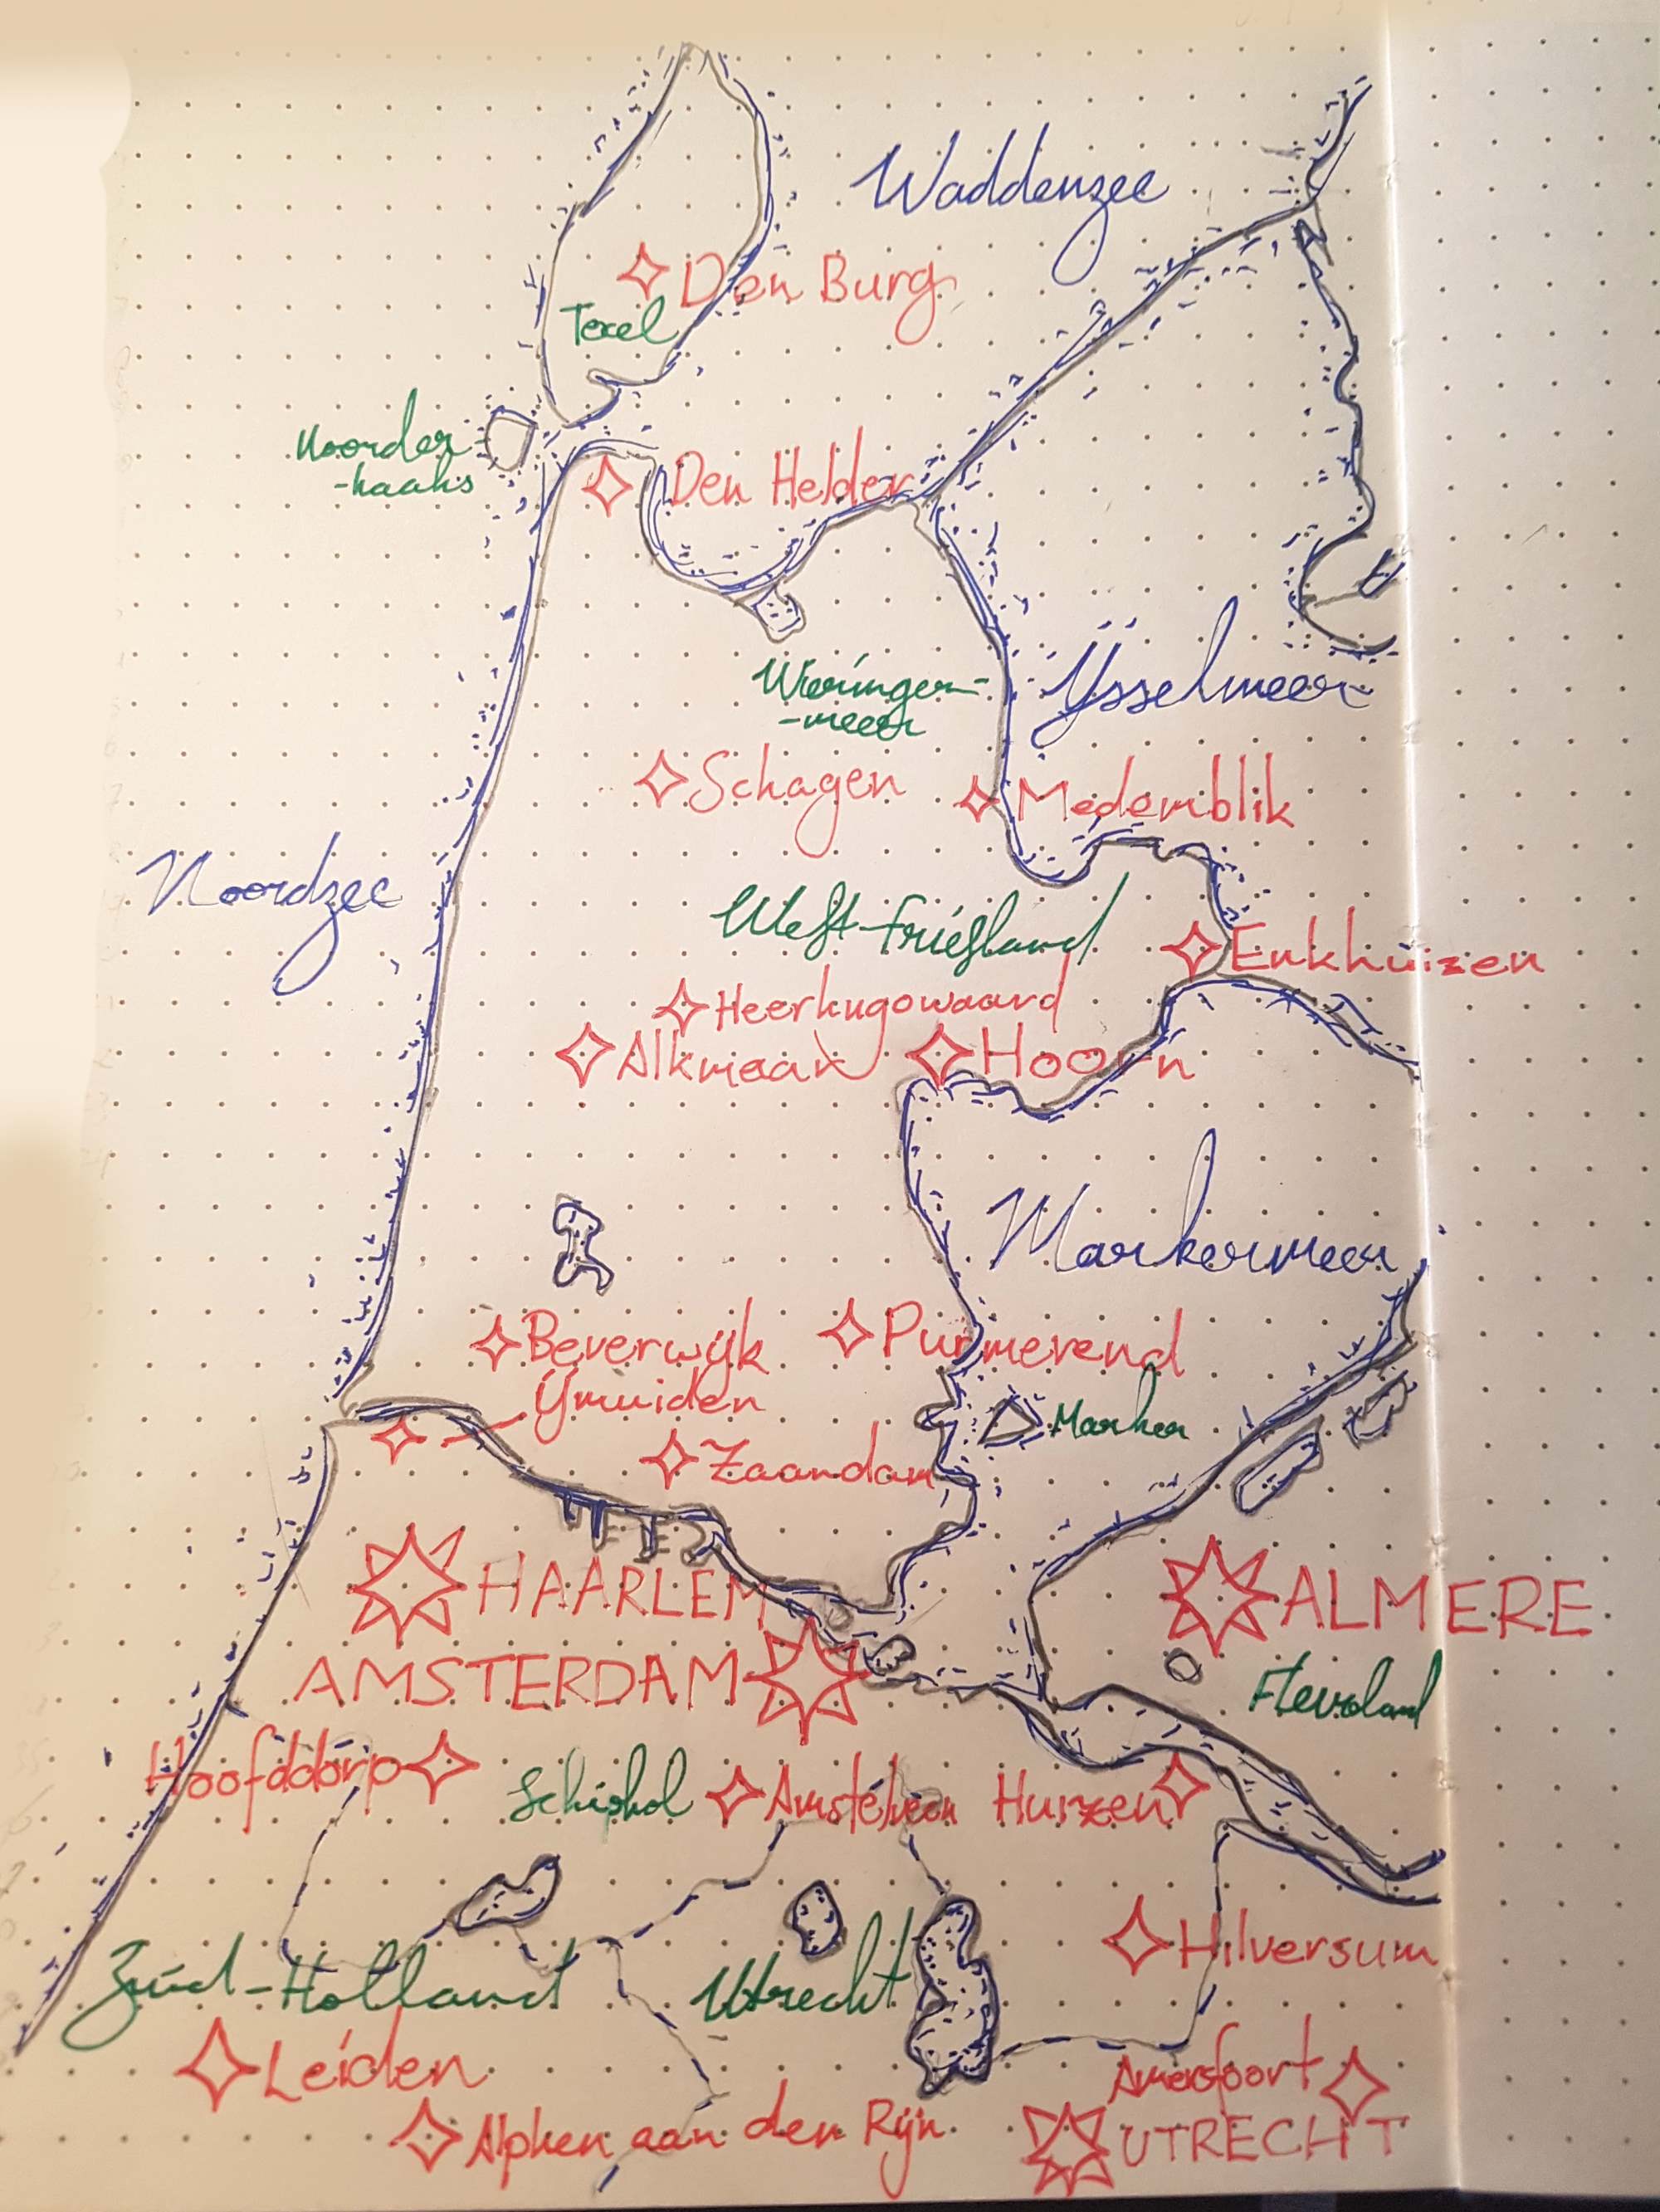 Waddenzee
Den Burg
Texel
Noorder-
-haaks
Den Helder
Wieringer-
-meer
Ijsselmeer
Schagen
Medemblik
Noordzee
West-Friesland
Enkhuizen
Heerhugowaard
Alkmaar
Hoorn
Markermeer
Beverwijk
Purmerend
Ijmuiden
Marken
Zaandam
HAARLEM
ALMERE
AMSTERDAM
Flevoland
Hoofddorp
Schiphol
Amstelveen
Huizen
Hilversum
Zuid-Holland
Utrecht
Leiden
Amersfoort
Alphen aan den Rijn
UTRECHT